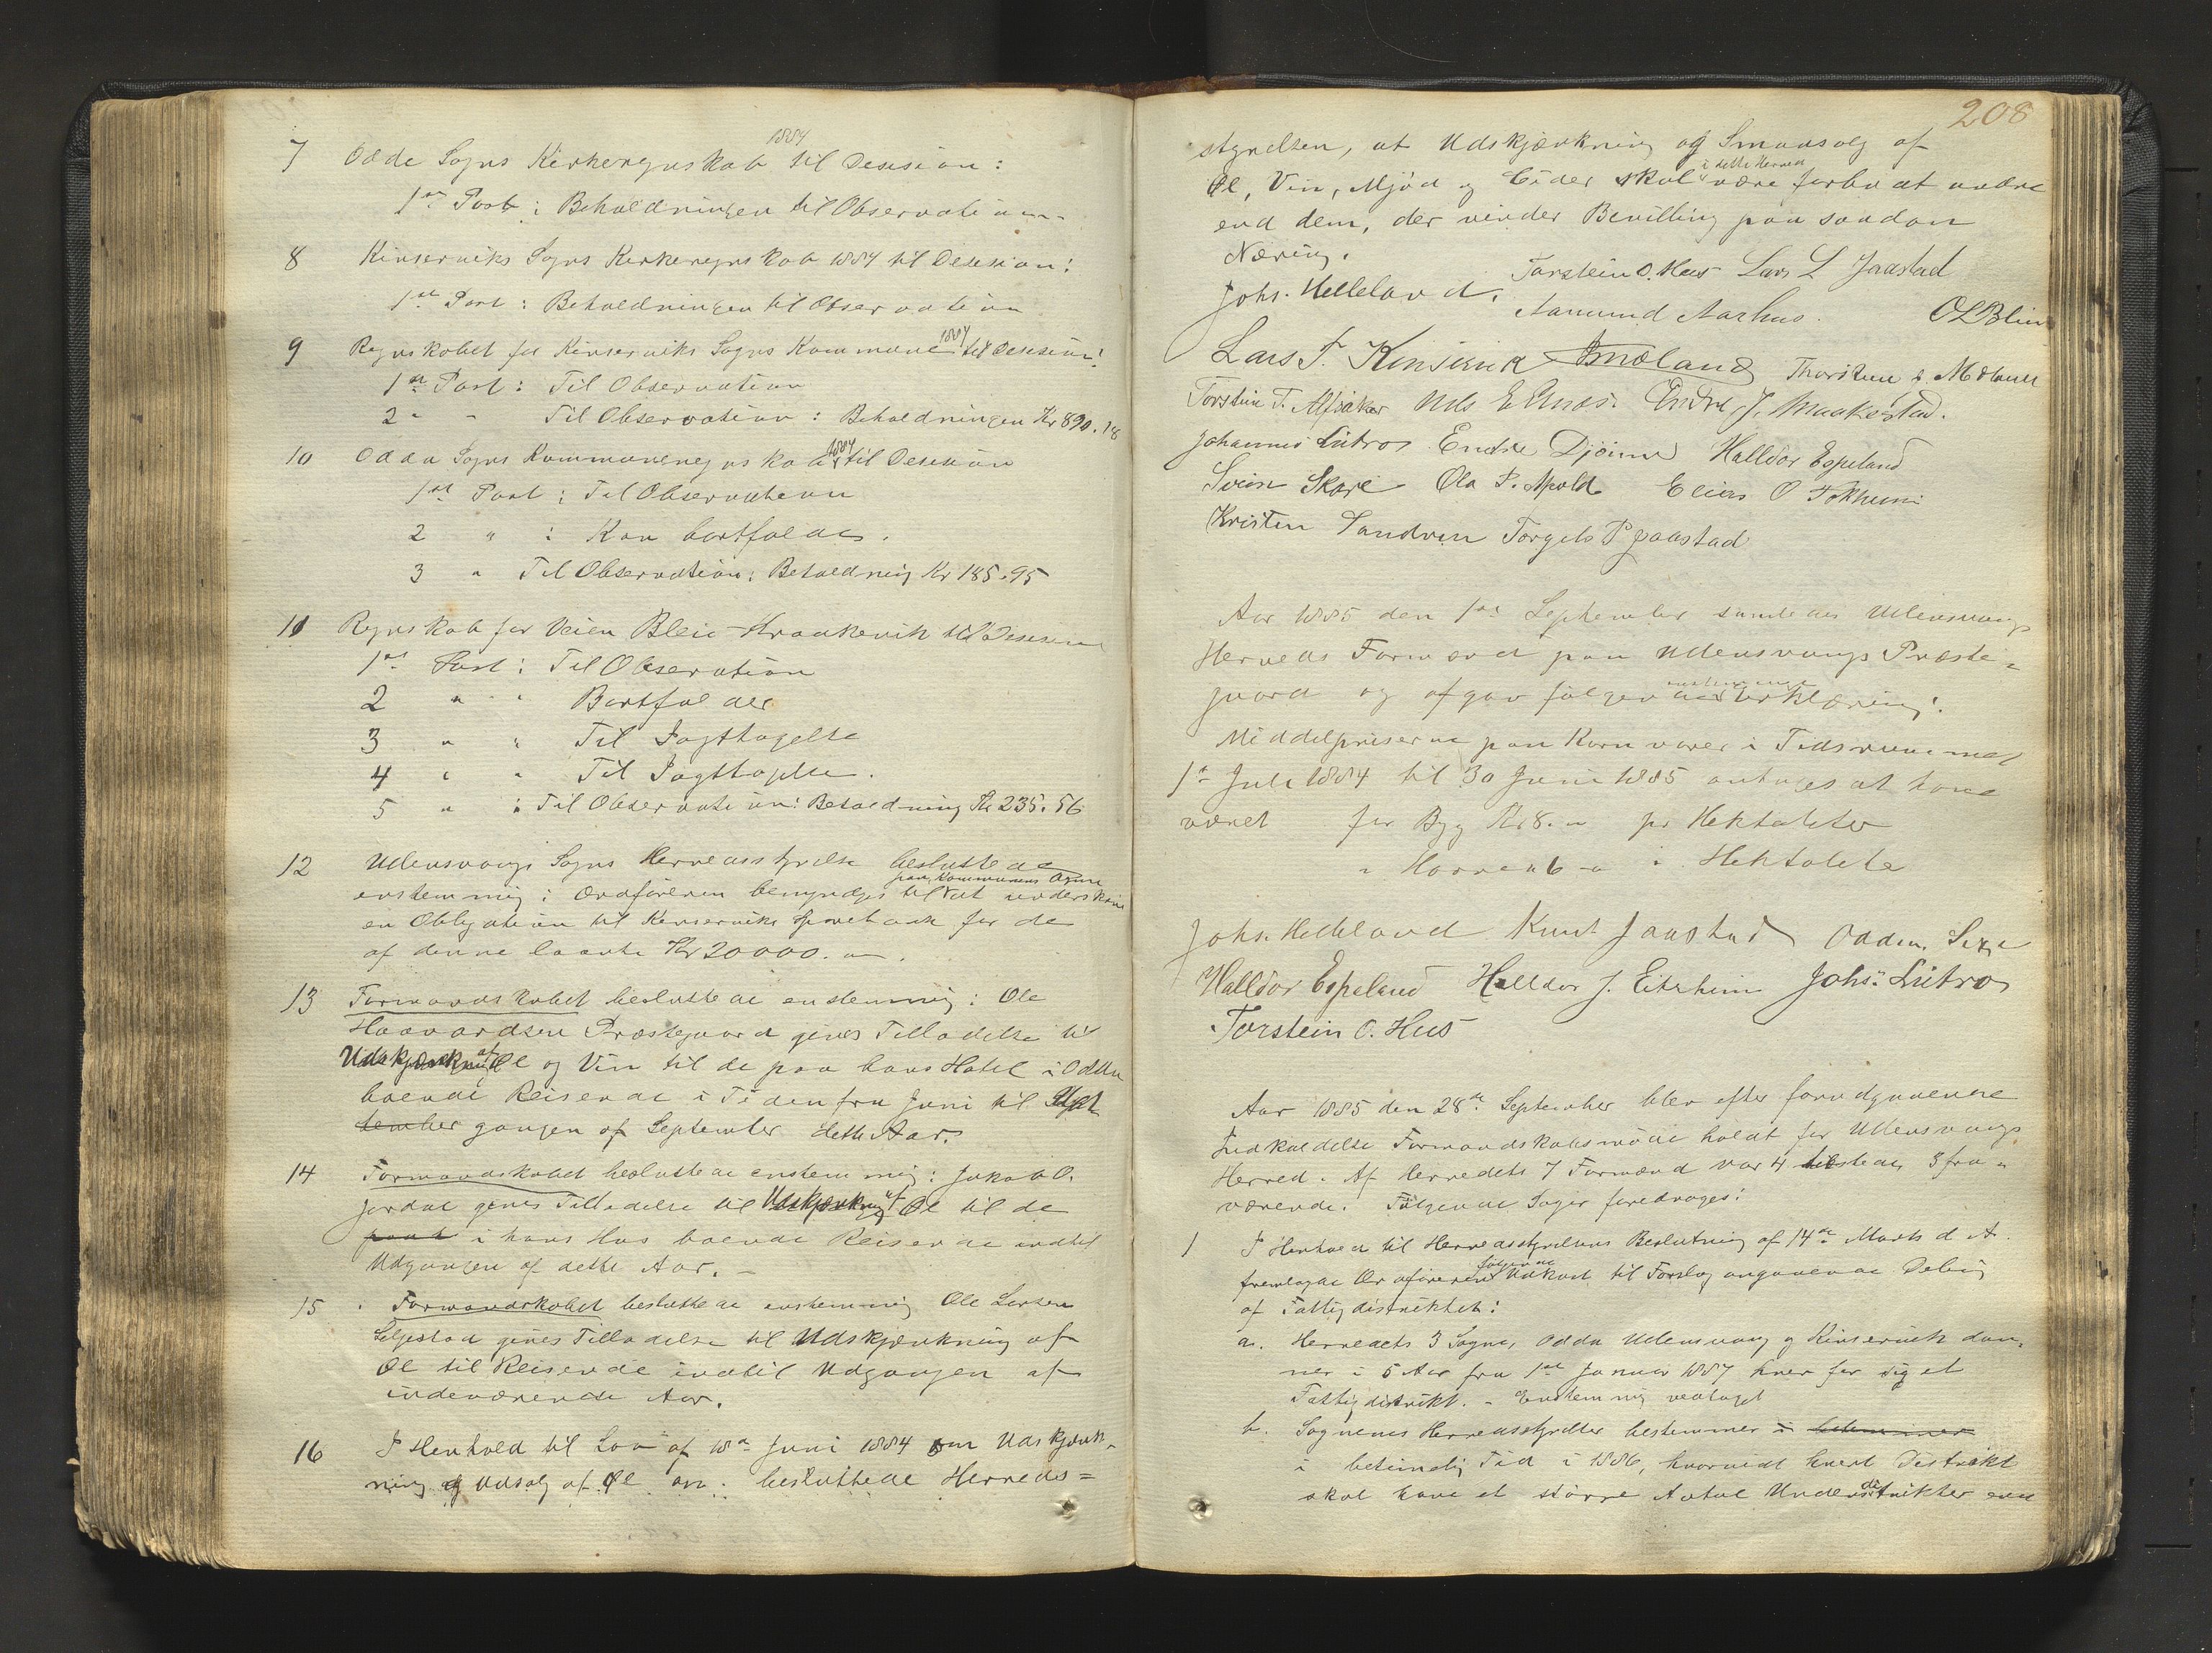 7 Odde Sogns Kirkeregnskab 1884 til Desision:
1ste Post: Beholdningen til Observation
8 Kinserviks Sogns Kirkeregnskab 1884 til Desision:
1ste Post: Beholdningen til Observation
9 Regnskabet for Kinserviks Sogns Kommune 1884 til Desision:
1ste Post: Til Observation
2 " Til Observation: Beholdningen Kr 890.18
10 Odda Sogns Kommuneregnskab 1884 til Desision
1ste Post: Til Observation
2 " : Kan bortfalde.
3 " Til Observation: Beholdning Kr 185.95
11 Regnskab for Veien Bleie-Kraakevik til Desision
1ste Post: Til Observation
2 " " Bortfalder
3 " " Til Iagttagelse
4 " " Til Iagttagelse.
5 " : Til Observation: Beholdning Kr 235.56
12 Ullensvangs Sogns Herredsstyrelse besluttede
enstemmig: Ordføreren bemyndiges til paa Kommunens Vegne at underskrive
en Obligation til Kinserviks Sparebank for de
af denne laante Kr 20000.
13 Formandskabet besluttede enstemmig: Ole
Haavardsen Præstegaard gives Tilladelse til
Udskjænkning af Øl og Vin til de paa hans Hotel i Odda
boende Reisende i Tiden fra Juni til Udgangen
tember gangen af September dette Aar.
14 Formandskabet besluttede enstemmig: Jakob O.
Jordal gives Tilladelse til Udskjænkning af Øl til de
paa i hans Hus boende Reisende indtil
Udgangen af dette Aar.
15 Formandskabet besluttede enstemmig Ole Larsen
Seljestad gives Tilladelse til Udskjænkning af
Øl til Reisende indtil Udgangen af
indeværende Aar.
16 I Henhold til Lov af 18de Juni 1884 om Udskjænk-
ning og Udsalg af Øl m. besluttede Herreds=
208
styrelsen, at Udskjænkning og Smaasalg af
Øl, Vin, Mjød og Cider skal i dette Herred være forbudt andre
end dem, der vinder Bevilling paa saadan
Næring.
Johs. Helleland. Torstein O. Hus Lars L Jaastad
Aamund Aarhus. O L Blie
Lars T. Kinservik Thorstein
Torstein T. Alsaker Nils E Endre J. Maakestad.
Johannes Lutro Endre Djønne Halldor Espeland
Svein Skare Ola P. Apold Elias O
Kristen Sandven Torgels P Jaastad
Aar 1885 den 1ste September samledes Ullensvangs
Herreds Formænd paa Ullensvangs Præste-
gaard og afgav følgende enstemmige Erklæring:
Middelpriserne paa Kornvarer i Tidsrummet
1ste Juli 1884 til 30 Juni 1885 antages at have
været for Byg Kr 8. " pr Hektoliter
" Havren 6 - " " Hektoliter
Johs. Helleland Knut Jaastad Oddm.
Halldor Espeland Halldor J. Eitrheim Johs. Lutro
Torstein O. Hus
Aar 1885 den 28de September blev efter forudgaaende
Indkaldelse Formandskabsmøde holdt for Ullensvangs
Herred. Af Herredets 7 Formænd var 4 tilstede, 3 fra-
værende. Følgende Sager foredroges:
1 I Henhold til Herredsstyrelsens Beslutning af 14de Marts d. A.
fremlagde Ordføreren følgende Udkast til Forslag angaaende Deling
af Fattigdistriktet:
a. Herredets 3 Sogne, Odda Ullensvang og Kinservik dan-
ner i 5 Aar fra 1ste Januar 1887 hver for sig et
Fattigdistrikt. - Enstemmig vedtaget
b. Sognenes Herredsstyrelser bestemmer i
i betimelig Tid i 1886, hvorvidt hvert Distrikt
skal have et større Antal Underdistrikter end